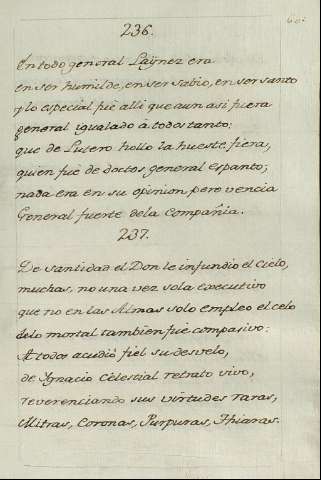 236.
En todo general Laÿnez era
en ser humilde, en ser sabio, en ser santo
y lo especial fue alli que aun asi fuera
general igualado à todos tanto:
que de Lusero hollo la hueste fiera,
quien fue de doctos general espanto;
nada era en su opinion pero vencia
General fuerte dela Compañia.
237.
De santidad el Don le infundio el Cielo,
muchas, no una vez sola executivo
que no en las Almas solo empleo el celo
delo mortal tambien fue compasivo:
A todos acudiò fiel su desvelo,
de Ygnacio Celestial retrato vivo,
reverenciando sus virtudes raras,
Mitras, Coronas, Purpuras, Thiaras.